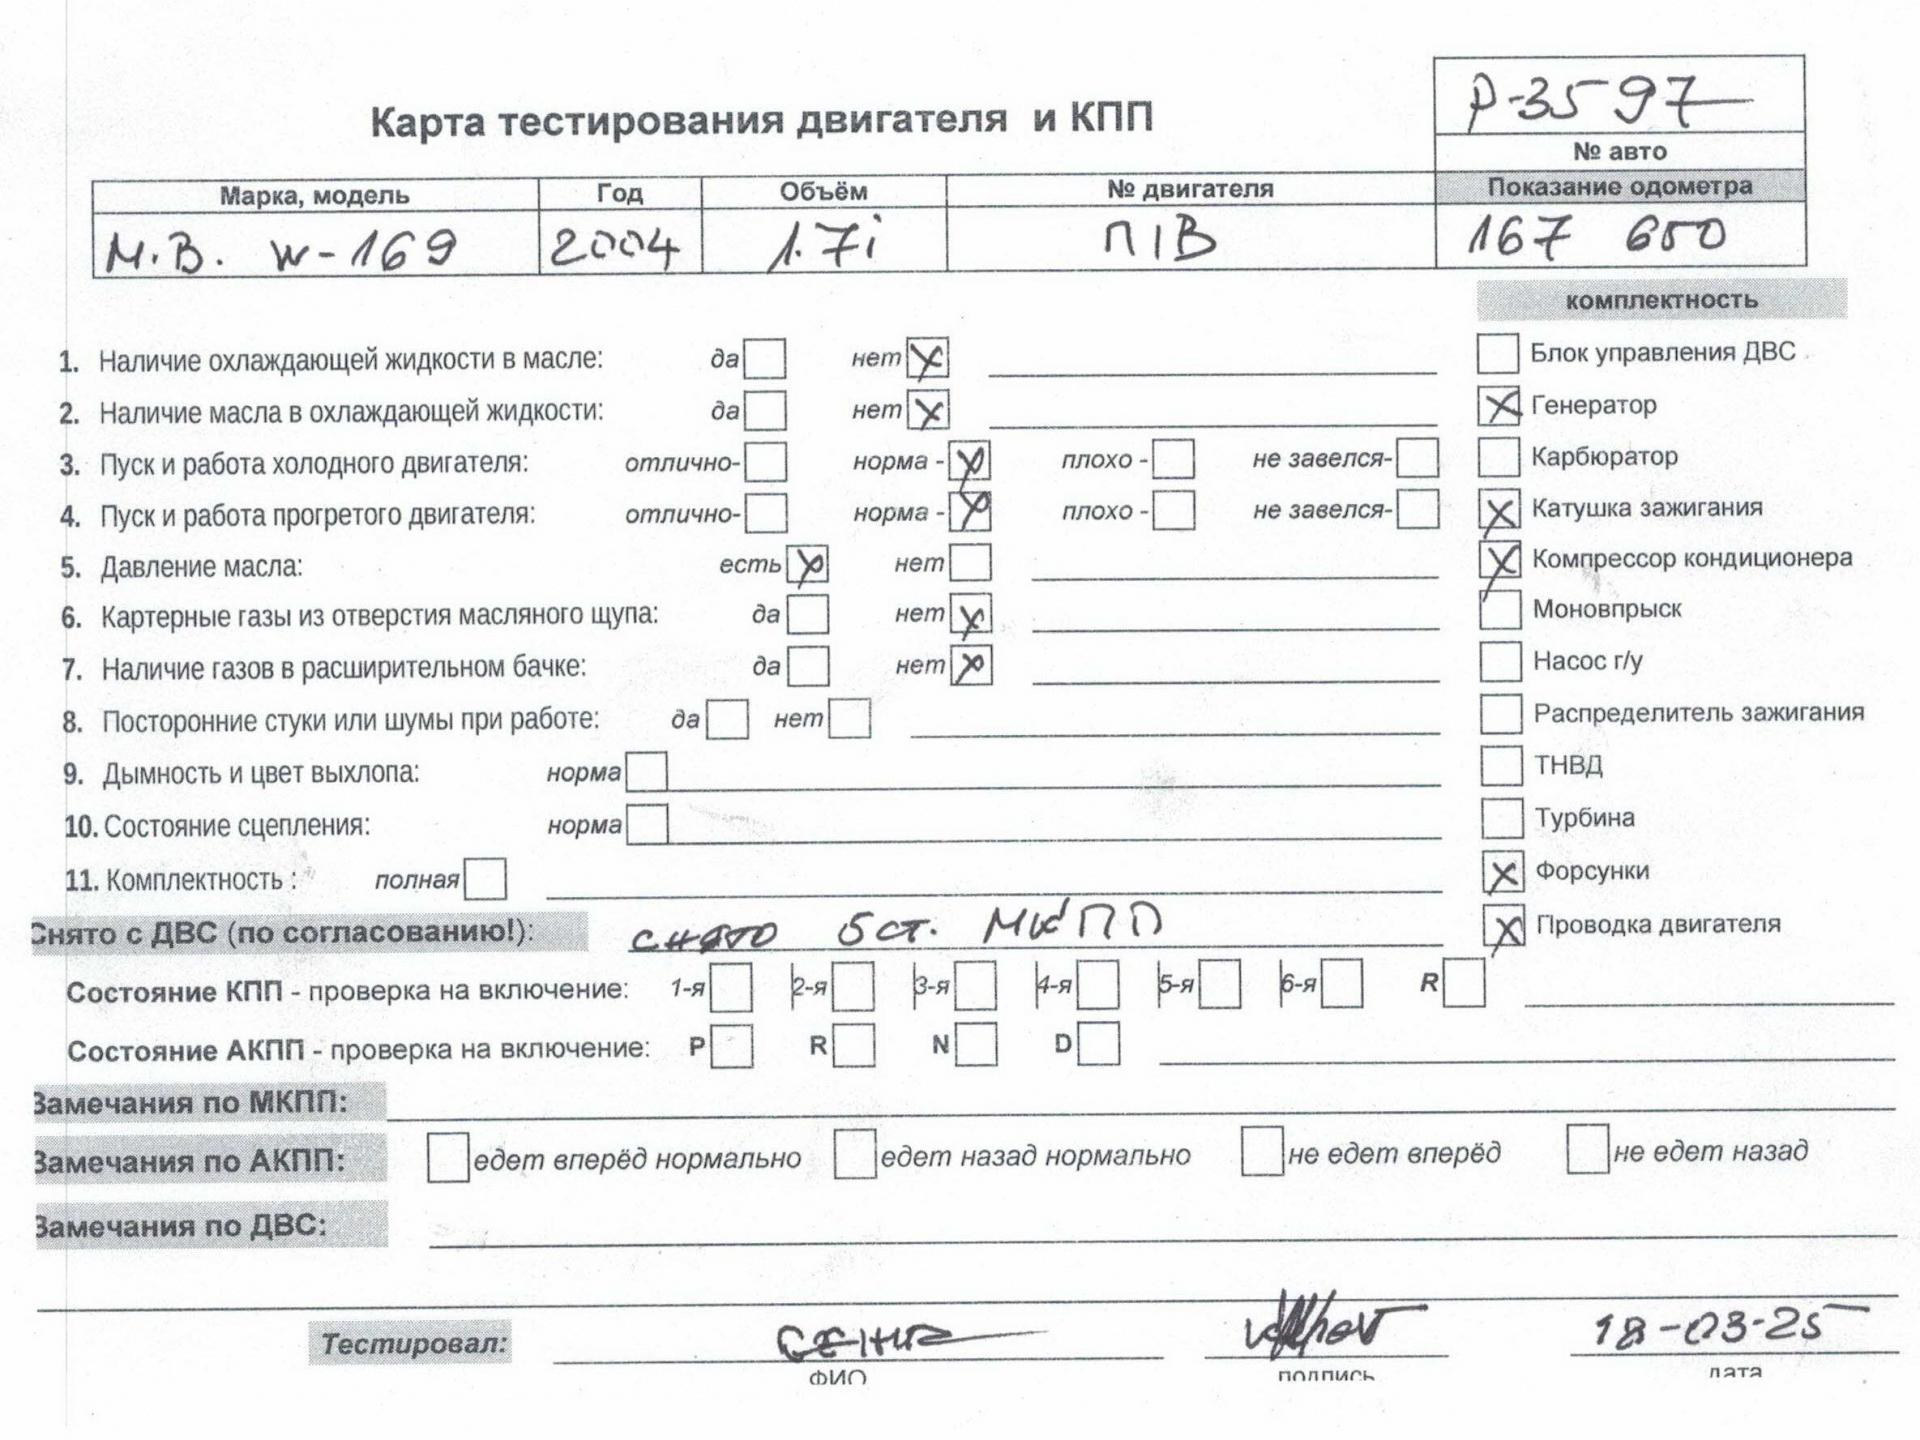 Р-3597
Карта тестирования двигателя и КПП
№ авто
Марка, модель Год Объём № двигателя Показание одометра
М.В. W-169 2004 1.7i П1В 167 650
комплектность
1. Наличие охлаждающей жидкости в масле: да нет
Блок управления ДВС
2. Наличие масла в охлаждающей жидкости: да нет
Генератор
3. Пуск и работа холодного двигателя: отлично- норма - плохо - не завелся-
Карбюратор
4. Пуск и работа прогретого двигателя: отлично- норма - плохо - не завелся-
Катушка зажигания
5. Давление масла: есть нет
Компрессор кондиционера
6. Картерные газы из отверстия масляного щупа: да нет
Моновпрыск
7. Наличие газов в расширительном бачке: да нет
Насос г/у
8. Посторонние стуки или шумы при работе: да нет
Распределитель зажигания
9. Дымность и цвет выхлопа: норма
ТНВД
10. Состояние сцепления: норма
Турбина
11. Комплектность : полная
Форсунки
Снято с ДВС (по согласованию!): снято 5ст. МКПП
Проводка двигателя
Состояние КПП - проверка на включение: 1-я 2-я 3-я 4-я 5-я 6-я R
Состояние АКПП - проверка на включение: P R N D
Замечания по МКПП:
Замечания по АКПП: едет вперёд нормально едет назад нормально не едет вперёд не едет назад
Замечания по ДВС:
Тестировал: 18-03-25
ФИО подпись дата